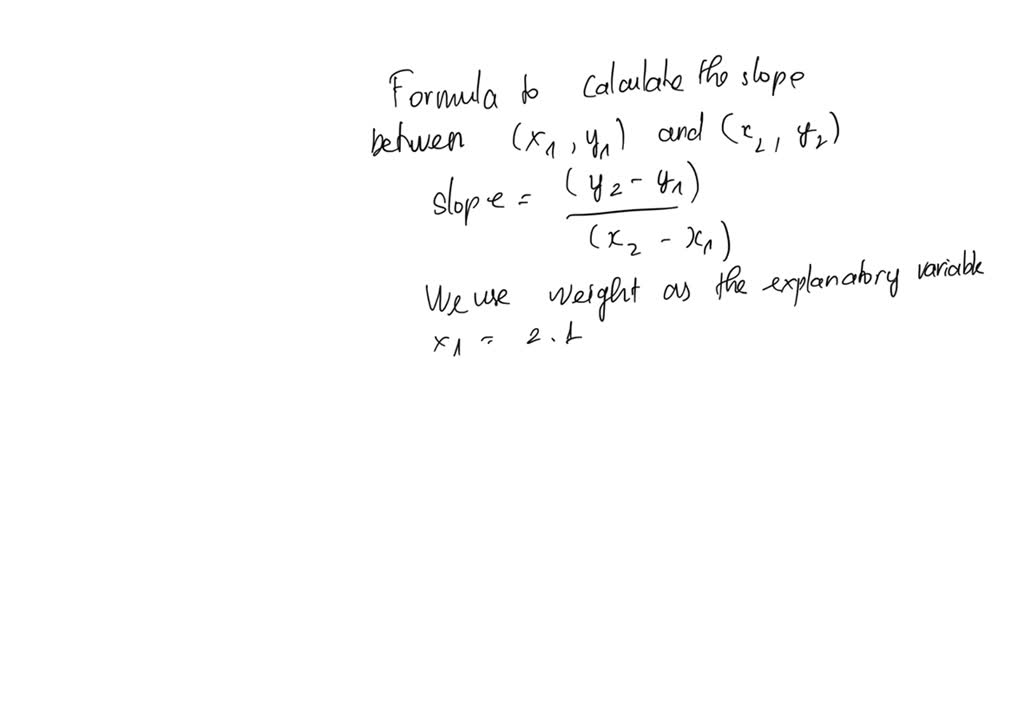 Formula to calculate the slope
between (x1, y1) and (x2, y2)
slope = (y2 - y1)
(x2 - x1)
We use weight as the explanatory variable
x1 = 2.1